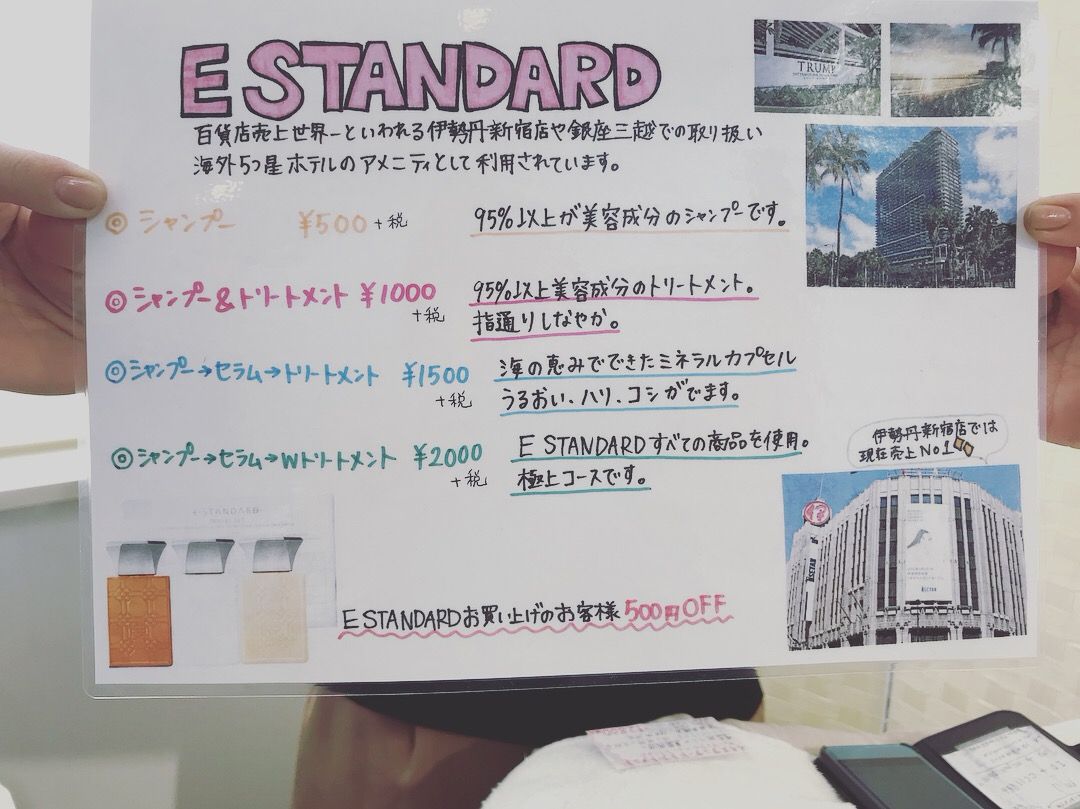 E STANDARD
TRUMP
百貨店売上世界一といわれる伊勢丹新宿店や銀座三越での取り扱い
海外5つ星ホテルのアメニティとして利用されています。
◎ シャンプー ¥500+税 95%以上が美容成分のシャンプーです。
◎ シャンプー&トリートメント ¥1000 +税 95%以上美容成分のトリートメント。
指通りしなやか。
◎ シャンプー→セラム→トリートメント ¥1500 +税 海の恵みでできたミネラルカプセル
うるおい、ハリ、コシがでます。
◎ シャンプー→セラム→Wトリートメント ¥2000 +税 E STANDARDすべての商品を使用。
極上コースです。
伊勢丹新宿店では
現在売上No1
E STANDARD
ISETAN
E STANDARDお買い上げのお客様 500円OFF